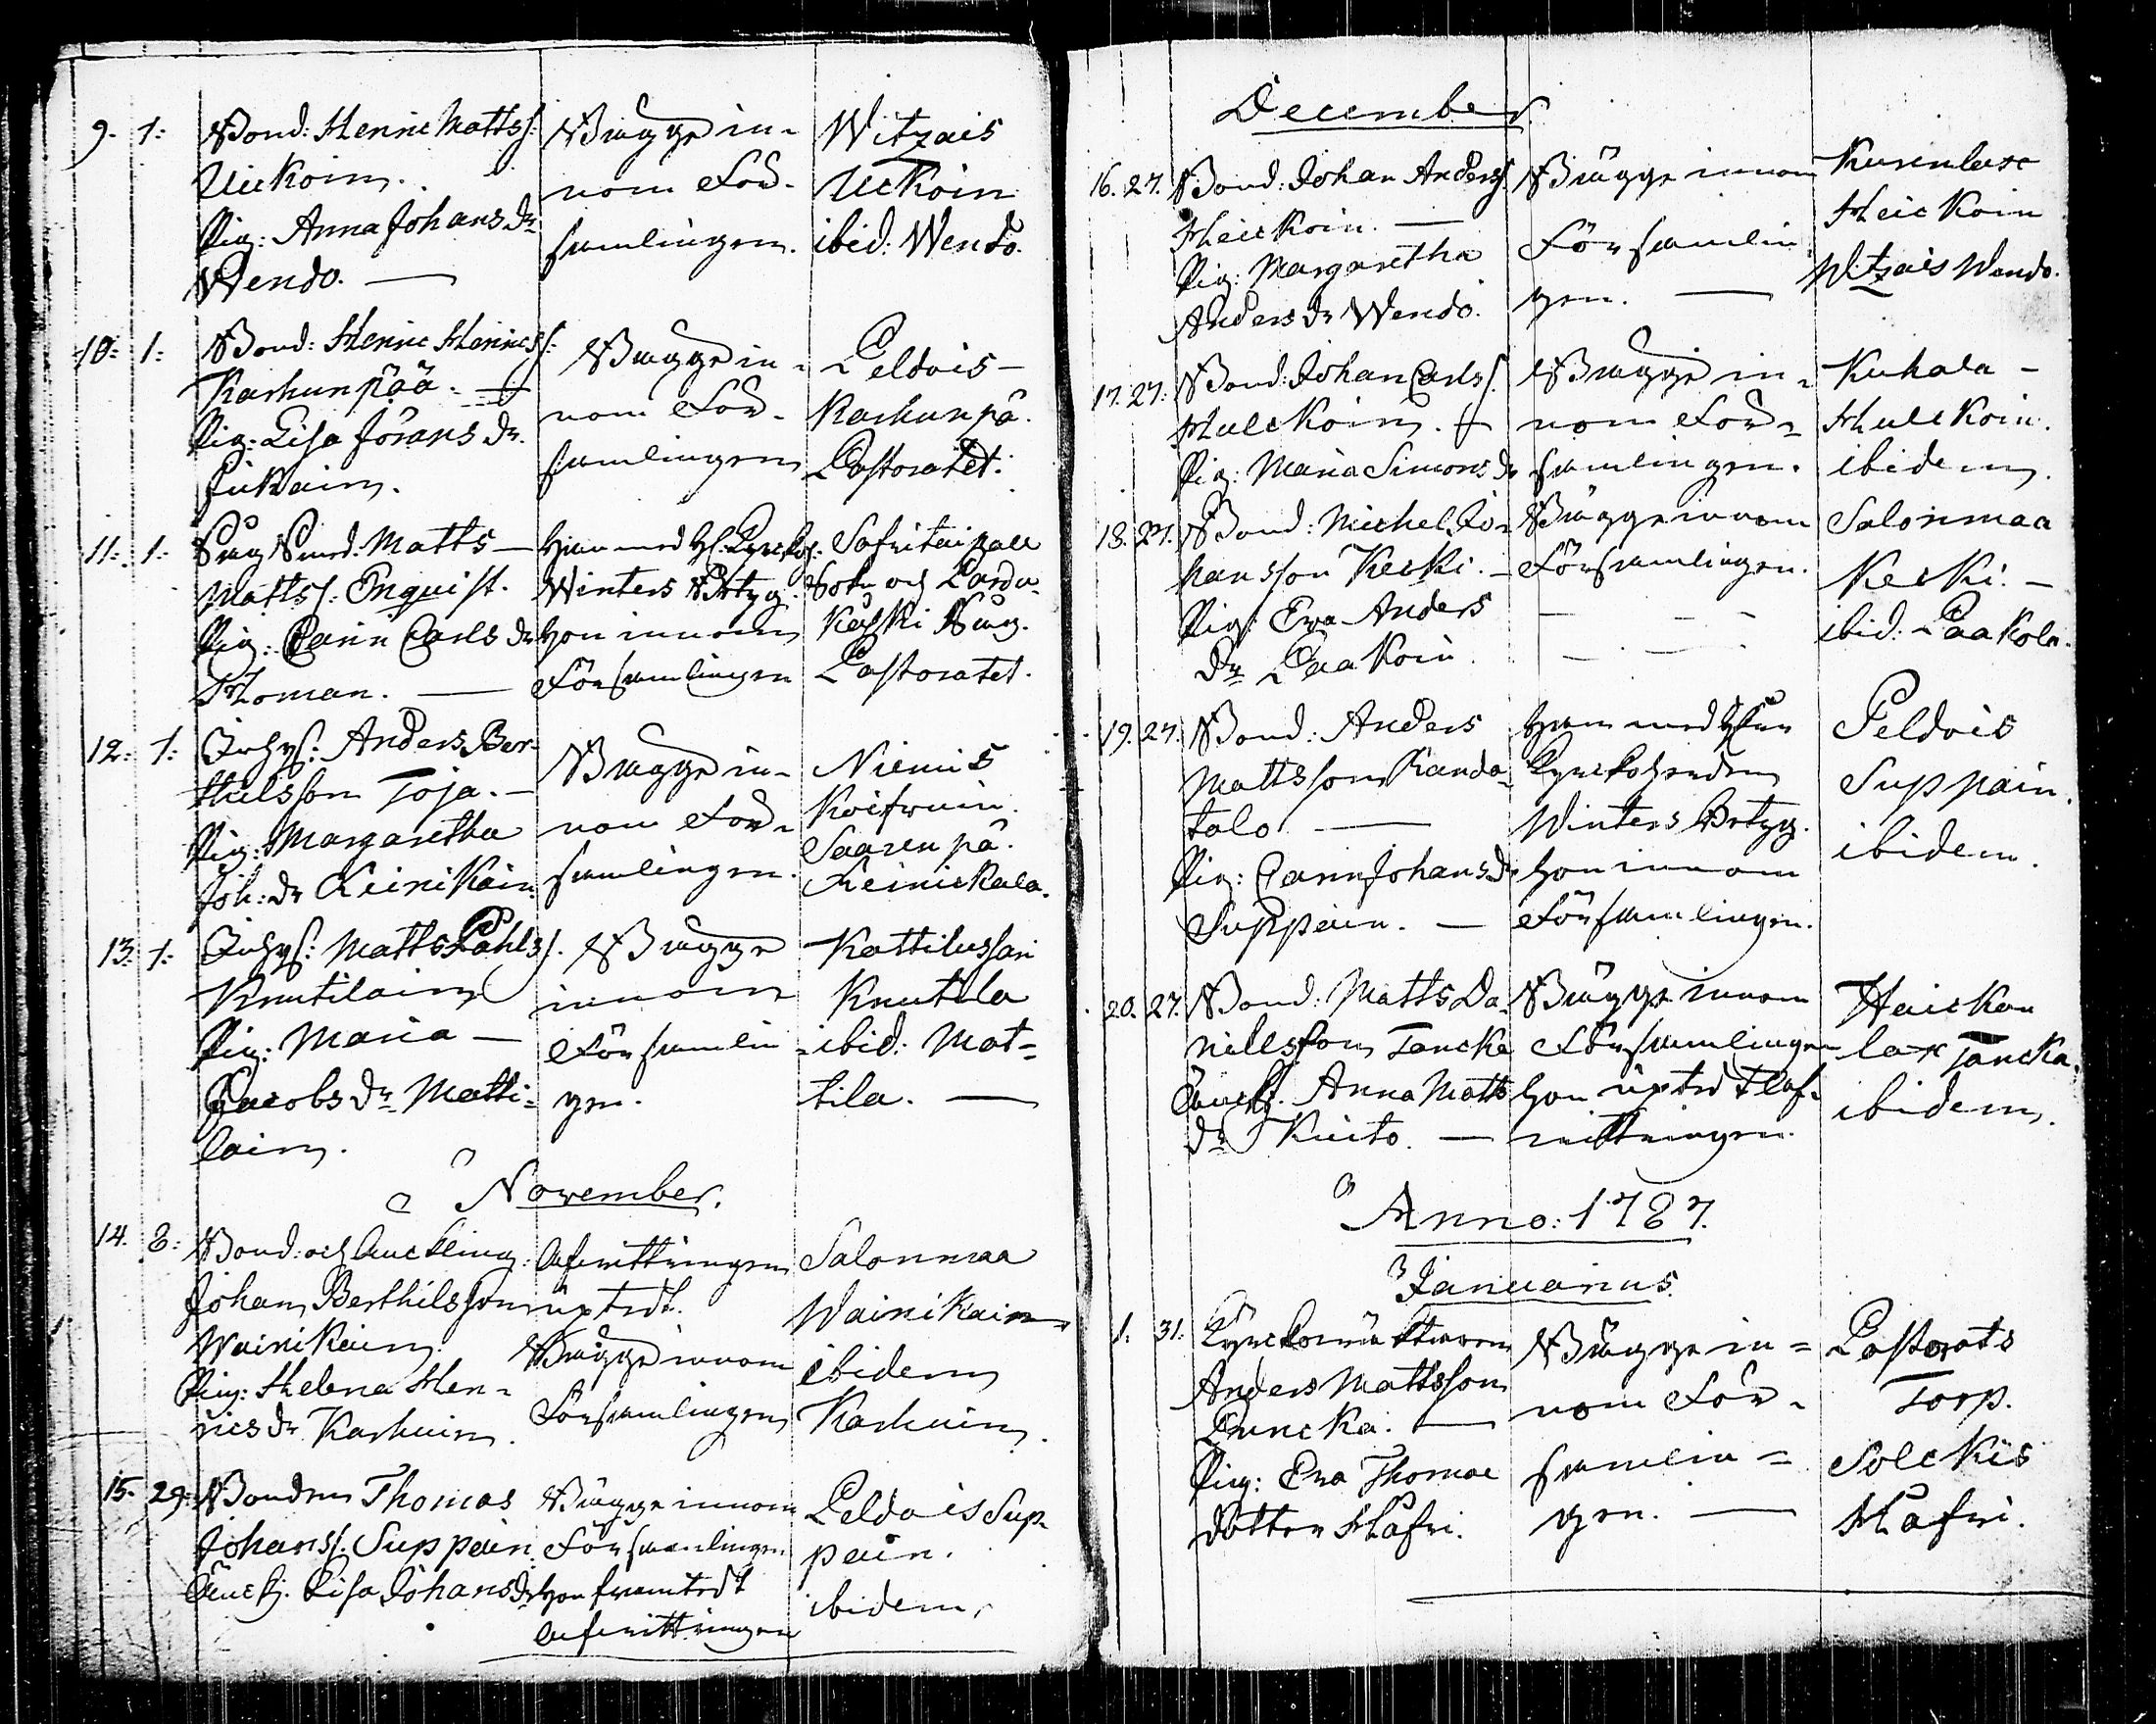 9. 1: Bond: Henric Matts:
Uickoin.
Pig: Anna Johans dr
Wendo. —
Bägge in-
nom För-
samlingen.
Witzais
Uckoin
ibid: Wendo.
10: 1: Bond: Henric Henrics:
Karhunpää. —
Pig: Lisa Jörans dr.
Bägge in-
nom För-
samlingen
Peldois —
Karhunpä.
Pastoratet.
11: 1: Matts —
Mattss: Enquist.
Pig: Carin Carls dr
Homan. —
Han med H:
Winters Betyg.
Hon innom
Församlingen
Safitaipale
Sokn och Parda-
koski
Pastoratet.
12: 1: Inhys: Anders Ber-
thilsson Toja. —
Pig: Margaretha
Joh: dr Reinikain.
Bägge in-
nom För-
samlingen.
Niemis
Saarenpä.
Reinickala.
13: 1: Inhys: Matts Påhlss.
Knutilain
Pig: Maria —
Jacobs dr Matti-
lain.
Bägge
innom
Församlin-
gen.
Kattilussari
Knutila
ibid: Mat-
tila. —
November.
14. 8: Bond: och Enckling:
Johan Berthilsson
Wainikain
Pig: Helena Hen-
rics dr Karhuin.
Afwittringen
Bägge innom
Församlingen
Salonmaa
Wainikain
ibidem
Karhuin.
15. 29: Bonden Thomas
Johanss: Suppain
Enck: Lisa Johans dr
Bägge innom
Församlingen
Hon framtedt
Afwittringen
Peldois Sup-
pain.
ibidem.
December.
16. 27. Bond: Johan Anderss
Heickoin. —
Pig: Margaretha
Anders dr Wendo.
Bägge innom
Församlin-
gen. —
Kurenlax
Heickoin
Witzais Wendo.
17. 27: Bond: Johan Carlss.
Hulckoin. —
Pig: Maria Simons dr
Bägge in-
nom För-
samlingen.
Kukola —
Hulckoin.
ibidem.
18. 27. Bond: Michel Jo-
hansson Kecki. —
Pig: Eva Anders
dr Paakoin.
Bägge innom
Församlingen.
Salonmaa
Kecki. —
ibid: Paakola.
19. 27. Bond: Anders
Mattsson Randa-
talo. —
Pig: Carin Johans dr
Suppain. —
Han med Herr
Kyrckoherden
Winters Betyg.
Hon innom
Församlingen.
Peldois
Suppain.
ibidem.
20. 27. Bond: Matts Da-
nielsson Tancka
Enck: Anna Matts
dr Kuito. —
Bägge innom
Församlingen
Hon Af-
wittringen.
Haicka-
lax Tancka.
ibidem.
Anno: 1787.
Januarius.
1. 31: Kyrckowäcktaren
Anders Mattsson
Puncka. —
Pig: Eva Thomae
dotter Hafri.
Bägge in-
nom För-
samlin-
gen. —
Pastorats
Torp.
Solckis
Hafri.